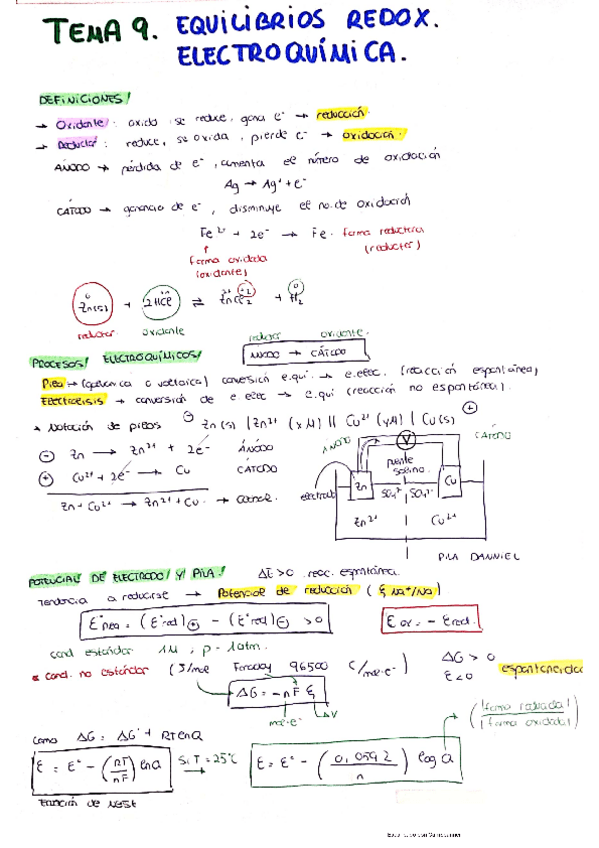 TEMA 9. EQUILIBRIOS REDOX.
ELECTROQUÍMICA.
DEFINICIONES/
→ Oxidante: oxida, se reduce, gana e⁻ → reducción.
→ Reductor: reduce, se oxida, pierde e⁻ → oxidación.
ÁNODO → pérdida de e⁻, aumenta el número de oxidación
Ag → Ag⁺ + e⁻
CÁTODO → ganancia de e⁻, disminuye el no. de oxidación
Fe²⁺ + 2e⁻ → Fe. forma reductora
(reductor)
↑
forma oxidada
(oxidante)
Zn(s) + 2HCl ⇌ ZnCl₂ + H₂
reductor oxidante
reductor oxidante.
PROCESOS/ ELECTROQUÍMICOS/ ÁNODO → CÁTODO
Pila → (galvánica o voltaica) conversión e.qui. → e.elec. (reacción espontánea)
Electrolisis → conversión de e.elec → e.qui (reacción no espontánea).
Notación de pilas ⊖ Zn(s) | Zn²⁺ (xM) || Cu²⁺ (yM) | Cu(s) ⊕
⊖ Zn → Zn²⁺ + 2e⁻ ÁNODO
⊕ Cu²⁺ + 2e⁻ → Cu CÁTODO
Zn + Cu²⁺ → Zn²⁺ + Cu
ÁNODO V CÁTODO
puente
salino.
electrodo Zn Cu
SO₄²⁻ SO₄²⁻
Zn²⁺ Cu²⁺
PILA DANNIEL
POTENCIAL/ DE ELECTRODO/ Y/ PILA/ ΔE>0 reac. espontánea.
Tendencia a reducirse → Potencial de reducción (ξ Na⁺/Na).
E°pila = (E°red)⊕ - (E°red)⊖ > 0 Eox. = - Ered.
cond estándar 1M, p = 1atm.
cond. no estándar (J/mol Faraday 96500 C/mol·e⁻) ΔG > 0
ξ<0 espontaneidad
ΔG = -nFξ
mol·e⁻ ΔV
(|forma reducida| / |forma oxidada|)
Como ΔG = ΔG° + RTlnQ
E = E° - (RT/nF) lnQ Si T = 25°C → E = E° - (0,0592/n) log Q